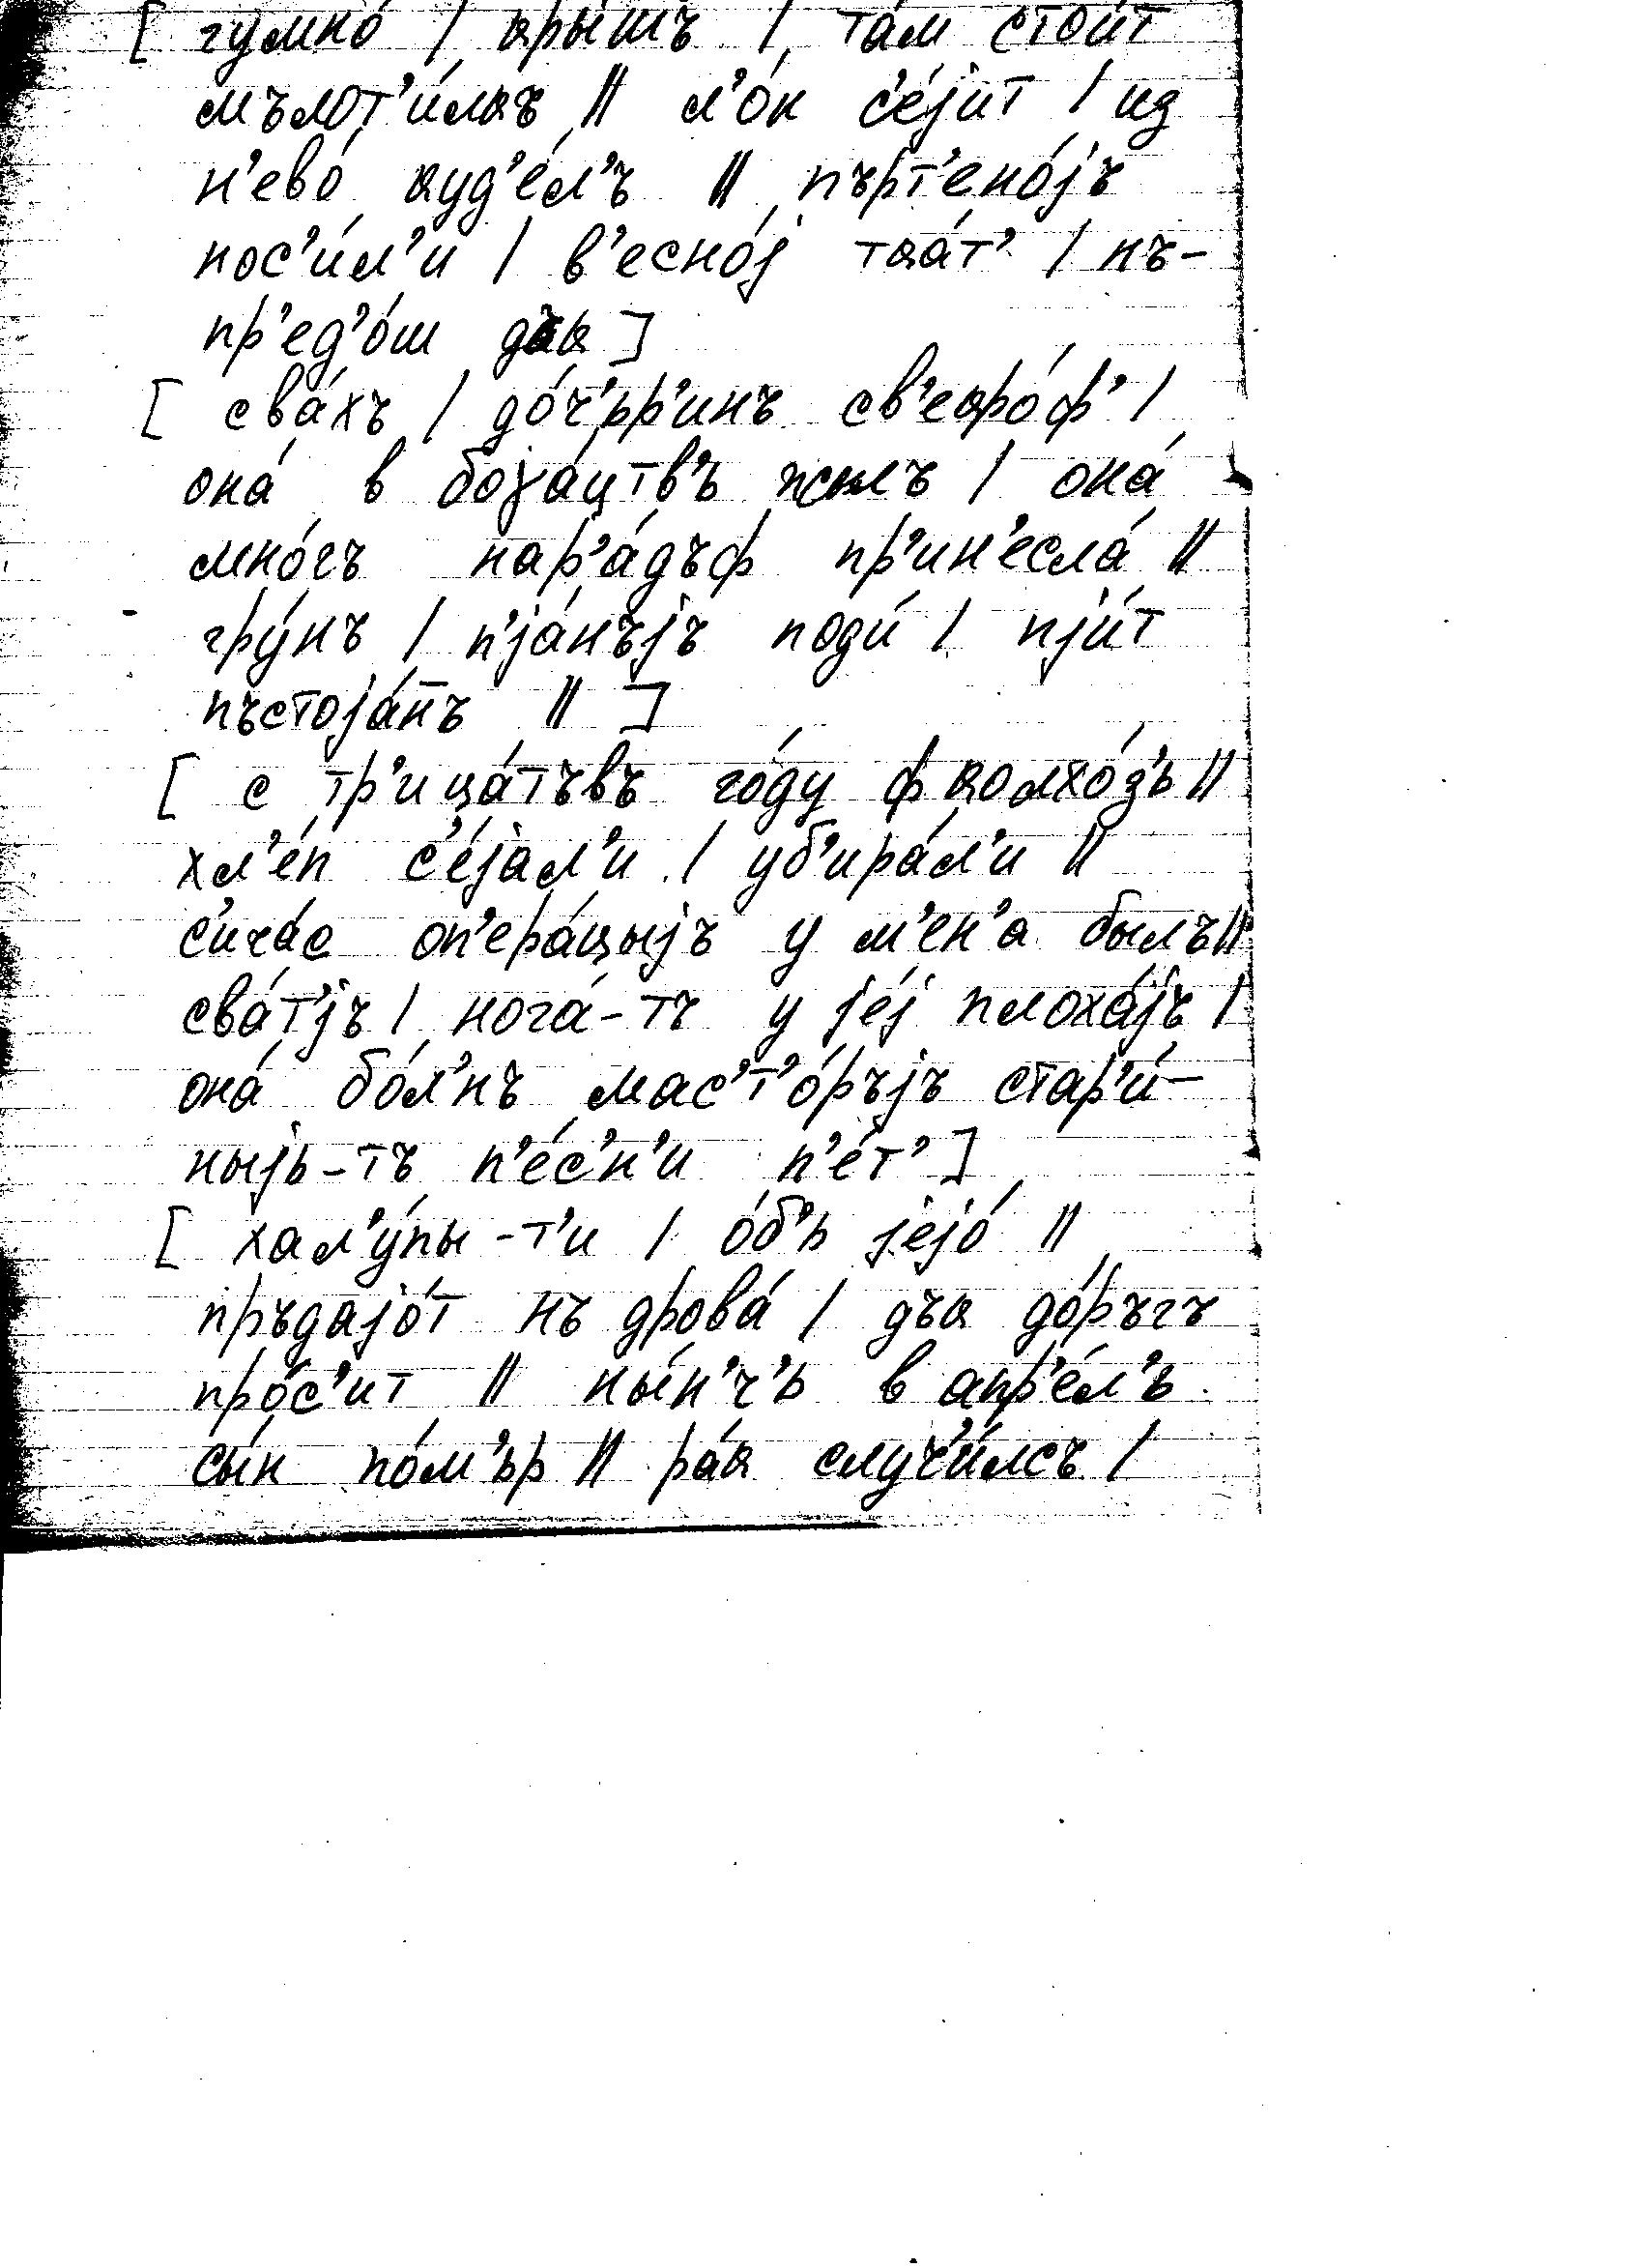 [ гумно́ / кры́шъ / та́м стои́т
мълот'и́лкъ // л'о́н с'е́јит / из
н'ево́ куд'е́л'ъ // пърт'ено́јъ
нос'и́л'и / в'есно́ј тка́т' / нъ-
пр'ед'о́ш дък ]
[ сва́хъ / до́ч'ьр'инъ св'екро́ф' /
она́ в боγа́цтв'ь жылъ / она́
мно́гъ нар'а́дъф пр'ин'есла́ //
гру́нъ / п'јáнъјъ поди́ / пји́т
пъстоја́нъ // ]
[ с тр'ица́тъвъ го́ду ф колхо́з'ь //
хл'е́п с'е́јал'и / уб'ира́л'и //
с'ича́с оп'ера́цыјъ у м'ен'а былъ //
сва́т'јъ / нога́-тъ у је́ј плоха́јъ /
она́ бо́л'нъ мас'т'о́ръјъ стар'и́-
ныјь-тъ п'е́с'н'и п'е́т' ]
[ хал'у́пы-т'и / о́б'ь јејо́ //
пръдајо́т нъ дрова́ / дък до́ръгъ
про́с'ит // ны́н'ч'ь в апр'е́л'ь
сы́н по́м'ьр // ра́к случ'и́лсъ /